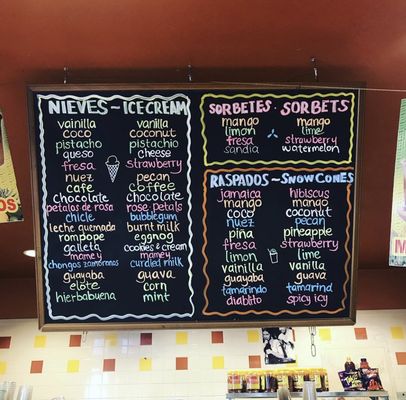 NIEVES ~ ICECREAM
vainilla vanilla
coco coconut
pistacho pistachio
queso cheese
fresa strawberry
nuez pecan
cafe coffee
chocolate chocolate
petalos de rosa rose petals
chicle bubblegum
leche quemada burnt milk
rompope eggnog
galleta cookies & cream
mamey mamey
chongos zamoranos curdled milk
guayaba guava
elote corn
hierbabuena mint
SORBETES - SORBETS
mango mango
limon lime
fresa strawberry
sandia watermelon
RASPADOS ~ SNOW CONES
jamaica hibiscus
mango mango
coco coconut
nuez pecan
piña pineapple
fresa strawberry
limon lime
vainilla vanilla
guayaba guava
tamarindo tamarind
diablito spicy icy